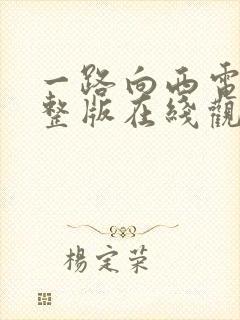 一路向西電
整版在綫觀
楊定榮